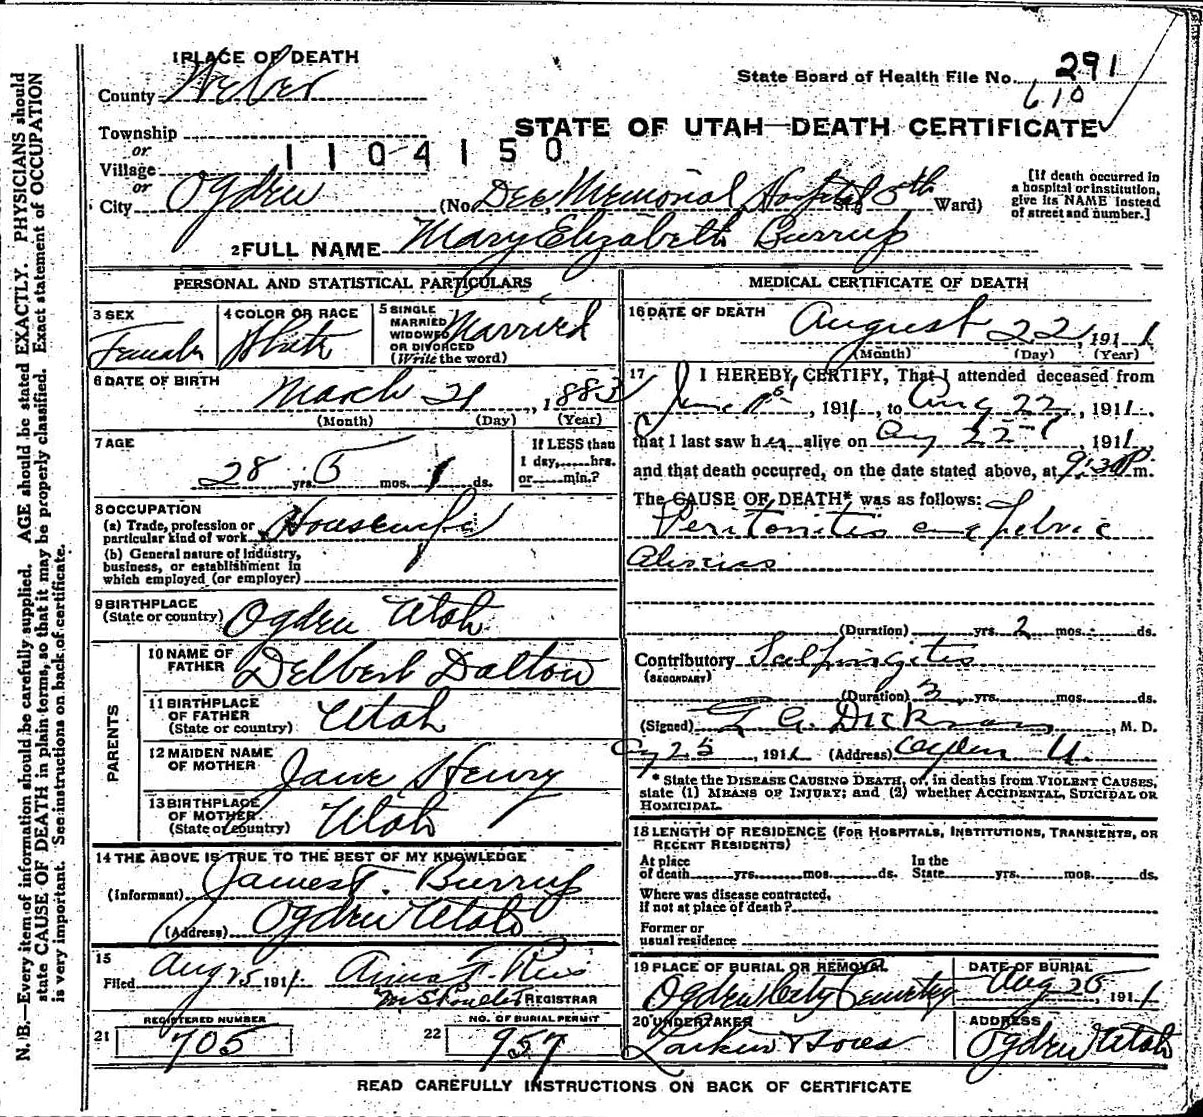 1 PLACE OF DEATH
County Weber
State Board of Health File No. 291
610
Township
or
Village
or
1104150
STATE OF UTAH—DEATH CERTIFICATE
City Ogden (No. Dee Memorial Hospital St. 5th Ward)
[If death occurred in
a hospital or institution,
give its NAME instead
of street and number.]
2 FULL NAME Mary Elizabeth Burrup
PERSONAL AND STATISTICAL PARTICULARS
3 SEX
Female
4 COLOR OR RACE
White
5 SINGLE
MARRIED
WIDOWED
OR DIVORCED
(Write the word)
Married
6 DATE OF BIRTH
March 21, 1883
(Month) (Day) (Year)
7 AGE
28 yrs. 5 mos. 1 ds.
If LESS than
1 day, hrs.
or min.?
8 OCCUPATION
(a) Trade, profession or
particular kind of work Housewife
(b) General nature of industry,
business, or establishment in
which employed (or employer)
9 BIRTHPLACE
(State or country) Ogden Utah
PARENTS
10 NAME OF
FATHER Delbert Dalton
11 BIRTHPLACE
OF FATHER
(State or country) Utah
12 MAIDEN NAME
OF MOTHER Jane Henry
13 BIRTHPLACE
OF MOTHER
(State or country) Utah
14 THE ABOVE IS TRUE TO THE BEST OF MY KNOWLEDGE
(Informant) James T. Burrup
(Address) Ogden Utah
15
Filed Aug 25 1911
REGISTRAR
REGISTERED NUMBER
21 705
NO. OF BURIAL PERMIT
22 957
MEDICAL CERTIFICATE OF DEATH
16 DATE OF DEATH
August 22, 1911
(Month) (Day) (Year)
17 I HEREBY CERTIFY, That I attended deceased from
June 1st, 1911, to Aug 22, 1911,
that I last saw her alive on Aug 22, 1911,
and that death occurred, on the date stated above, at 9:30 P m.
The CAUSE OF DEATH* was as follows:
Peritonitis and pelvic
abscess
(Duration) yrs. 2 mos. ds.
Contributory Salpingitis
(SECONDARY)
(Duration) 3 yrs. mos. ds.
(Signed) Dickson, M. D.
Aug 25, 1911 (Address) Ogden U.
* State the DISEASE CAUSING DEATH, or, in deaths from VIOLENT CAUSES,
state (1) MEANS OF INJURY; and (2) whether ACCIDENTAL, SUICIDAL OR
HOMICIDAL.
18 LENGTH OF RESIDENCE (FOR HOSPITALS, INSTITUTIONS, TRANSIENTS, OR
RECENT RESIDENTS)
At place
of death yrs. mos. ds.
In the
State yrs. mos. ds.
Where was disease contracted,
if not at place of death?
Former or
usual residence
19 PLACE OF BURIAL OR REMOVAL
Ogden City Cemetery
DATE OF BURIAL
Aug 25, 1911
20 UNDERTAKER
Larkin & Sons
ADDRESS
Ogden Utah
READ CAREFULLY INSTRUCTIONS ON BACK OF CERTIFICATE
N. B.—Every item of information should be carefully supplied. AGE should be stated EXACTLY. PHYSICIANS should
state CAUSE OF DEATH in plain terms, so that it may be properly classified. Exact statement of OCCUPATION
is very important. See instructions on back of certificate.